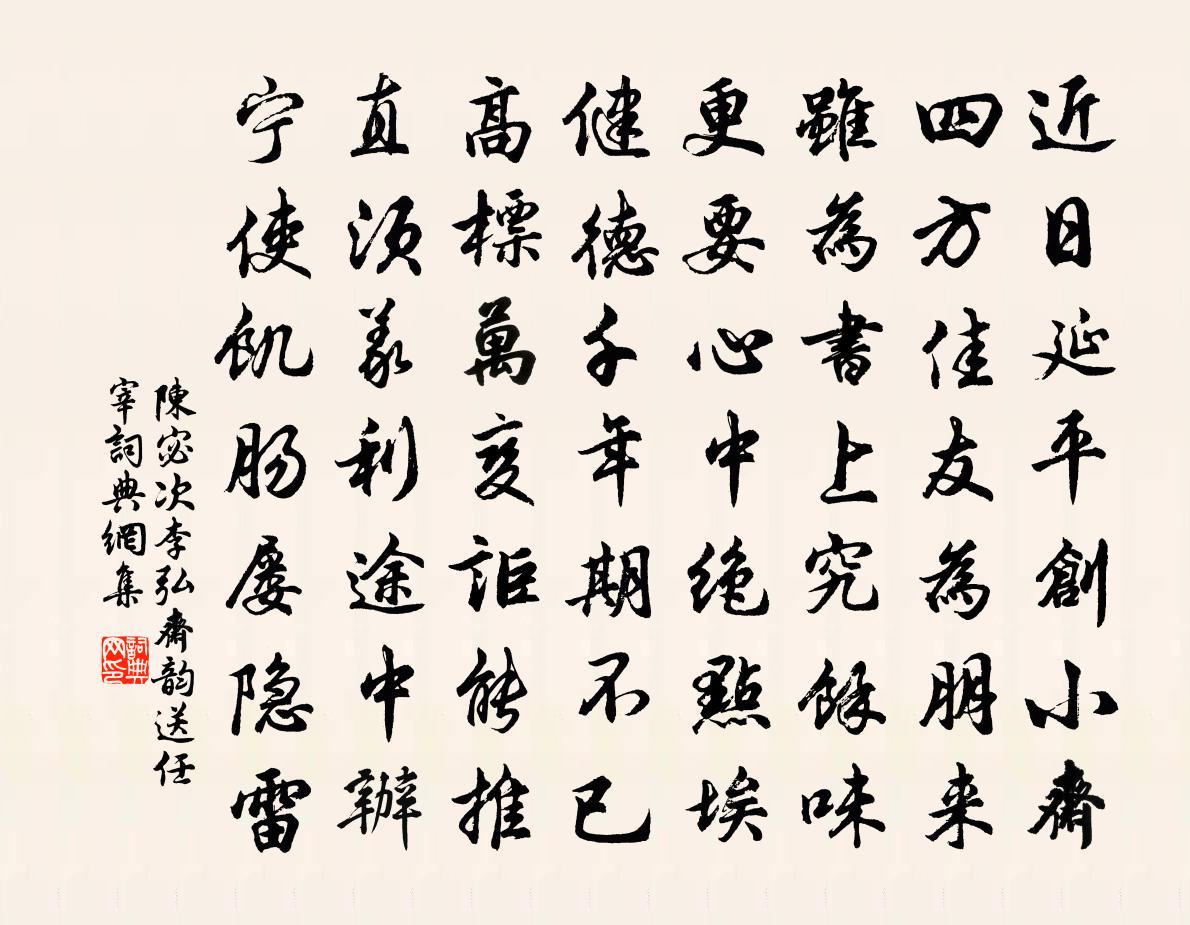 近日延平創小齋
四方佳友為朋来
雖為書上究餘味
更要心中絶點埃
健德千年期不已
高標萬變詎能推
直須義利途中辦
宁使飢腸屡隐雷
陳宓次李弘齋韵送任
宰詞典網集
詞典网印